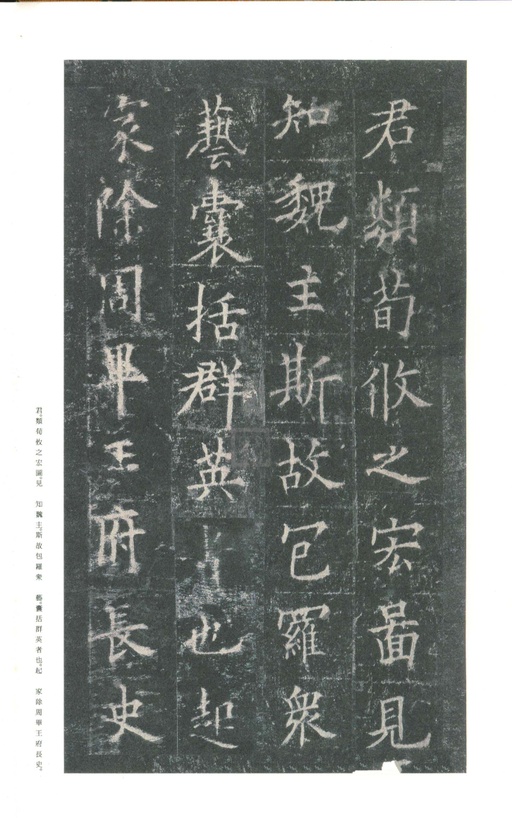 君類荀攸之宏圖見
知魏主斯故包羅衆
藝囊括群英者也起
家除周畢王府長史
君類荀攸之宏圖見 知魏主斯故包羅衆 藝囊括群英者也起 家除周畢王府長史